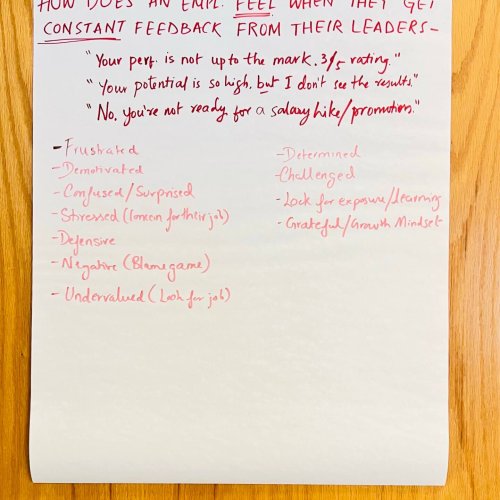 HOW DOES AN EMPL. FEEL WHEN THEY GET
CONSTANT FEEDBACK FROM THEIR LEADERS-
"Your perf. is not up to the mark. 3/5 rating."
"Your potential is so high, but I don't see the results."
"No, you're not ready for a salary hike/promotion."
-Frustrated
-Demotivated
-Confused/Surprised
-Stressed (Concern for their job)
-Defensive
-Negative (Blame game)
-Undervalued (Look for job)
-Determined
-Challenged
-Look for exposure/learning
-Grateful/Growth Mindset